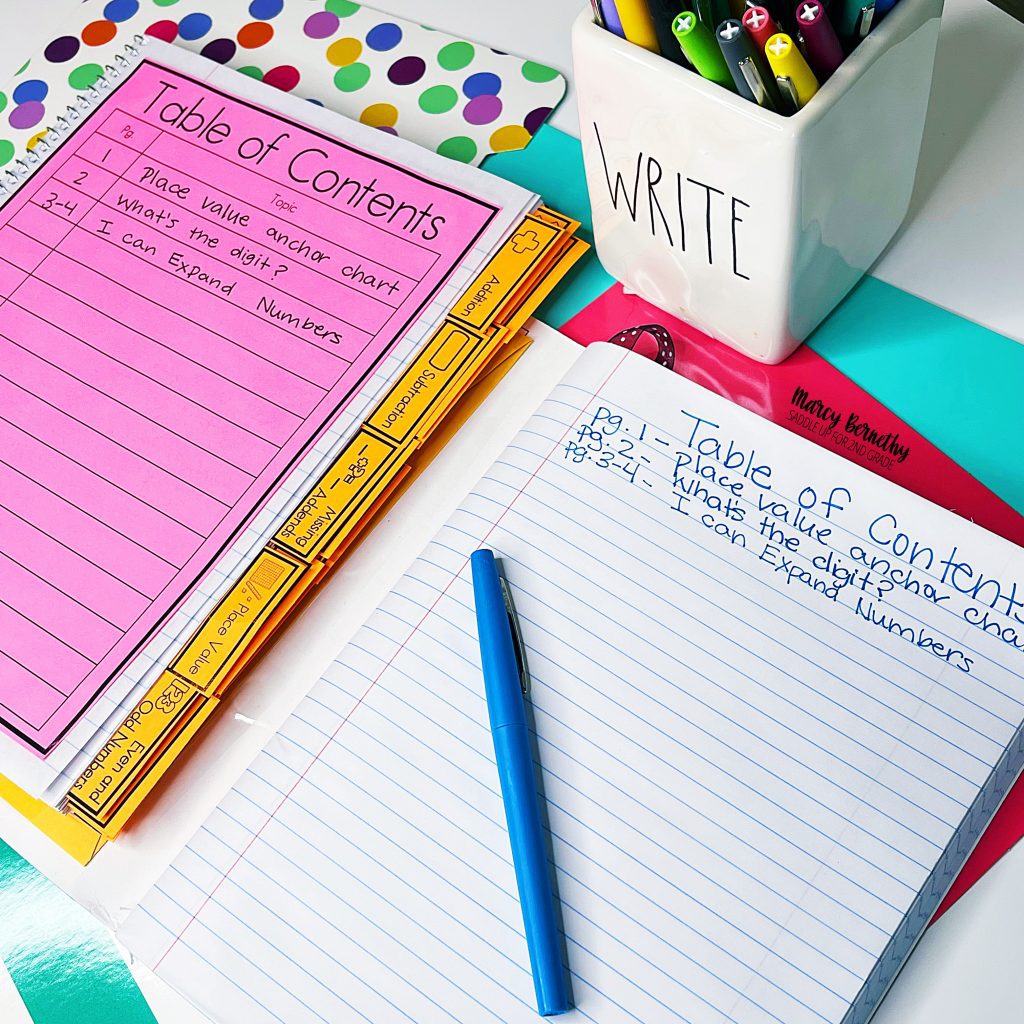 Table of Contents
Pg. Topic
1 Place value anchor chart
2 What's the digit?
3-4 I can Expand Numbers
Addition
Subtraction
Missing Addends
Place Value
123 Even and Odd Numbers
WRITE
Marcy Bernethy
SADDLE UP FOR 2ND GRADE
Table of Contents
pg. 1 - Place value anchor
pg. 2 - What's the digit?
pg. 3-4 - I can Expand Numbers